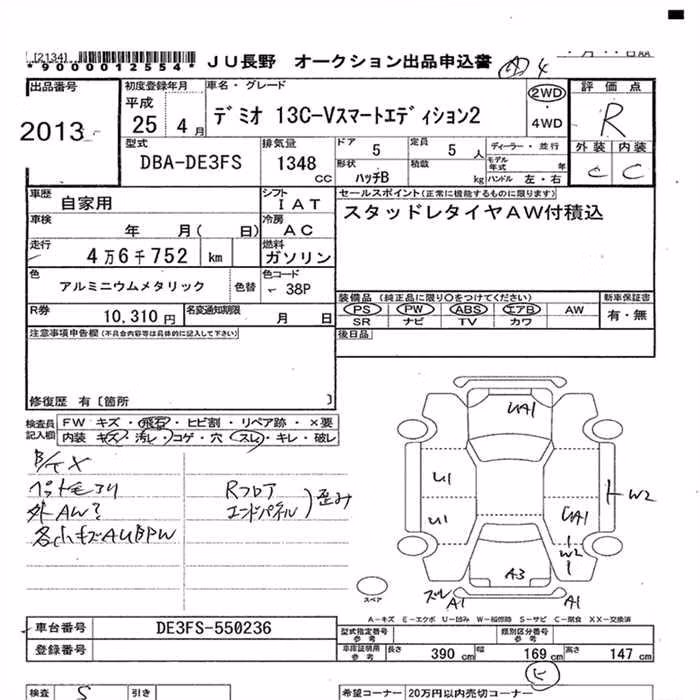 [2134]
*9000012554*
JU長野 オークション出品申込書 4
出品番号
2013
初度登録年月
平成
25 4月
車名・グレード
デミオ 13C-Vスマートエディション2
2WD
・
4WD
評価点
R
外装 内装
C C
型式
DBA-DE3FS
排気量
1348
cc
ドア 5
定員 5人
形状 ハッチB
積載 kg
ディーラー・並行
モデル年式 年
ハンドル 左・右
車歴
自家用
シフト
IAT
セールスポイント(正常に機能するものに限ります)
スタッドレタイヤAW付積込
車検
年 月( 日)
冷房
AC
走行
4万6千752 km
燃料
ガソリン
色
アルミニウムメタリック
色替
色コード
38P
R券
10,310円
名変通知期限
月 日
装備品(純正品に限り○をつけてください)
PS PW ABS エアB AW
SR ナビ TV カワ
新車保証書
有・無
注意事項申告欄(不具合内容等は具体的に記入して下さい)
後日品
修復歴 有〔箇所 〕
検査員記入欄
FW キズ・飛石・ヒビ割・リペア跡・×要
内装 キズ・汚レ・コゲ・穴・スレ・キレ・破レ
B/C X
ペット毛アリ
外AW?
各小キズAUBPW
Rフロア
エンドパネル
歪み
UA1
U1
U1
UA1
W2
W2
A3
ズレ
A1
A1
スペア
A-キズ E-エクボ U-凹み W-補修跡 S-サビ C-腐食 XX-交換済
車台番号
DE3FS-550236
登録番号
型式指定番号 参考
類別区分番号 参考
車庫証明用 参考
長さ 390cm
幅 169cm
高さ 147cm
検査 S
引き
希望コーナー
20万円以内売切コーナー